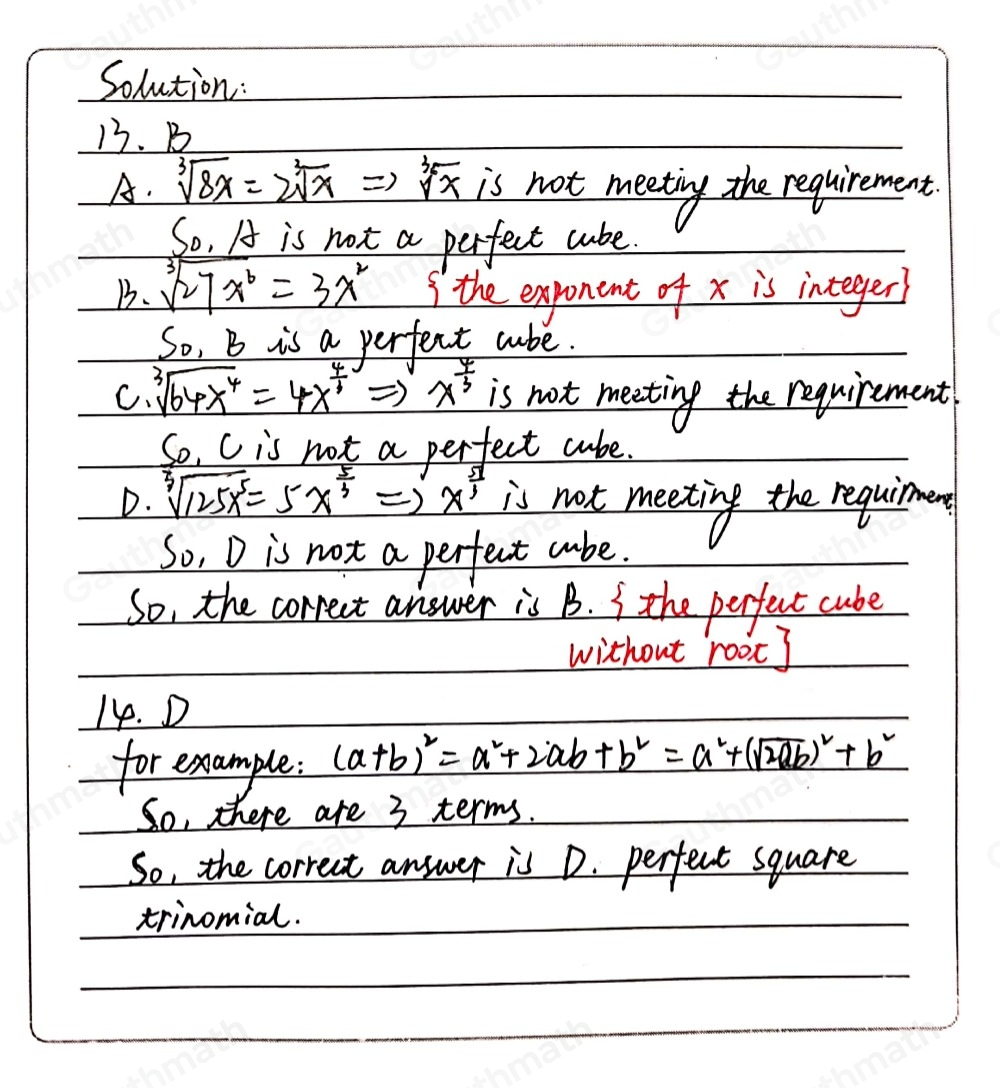 Solution:
13. B
A. ∛8x = 2∛x => ∛x is not meeting the requirement.
So, A is not a perfect cube.
B. ∛27x⁶ = 3x² {the exponent of x is integer}
So, B is a perfect cube.
C. ∛64x⁴ = 4x^(4/3) => x^(4/3) is not meeting the requirement.
So, C is not a perfect cube.
D. ∛125x⁵ = 5x^(5/3) => x^(5/3) is not meeting the requirment
So, D is not a perfect cube.
So, the correct answer is B. {the perfect cube
without root}
14. D
for example: (a+b)² = a²+2ab+b² = a²+(√2ab)²+b²
So, there are 3 terms.
So, the correct answer is D. perfect square
trinomial.